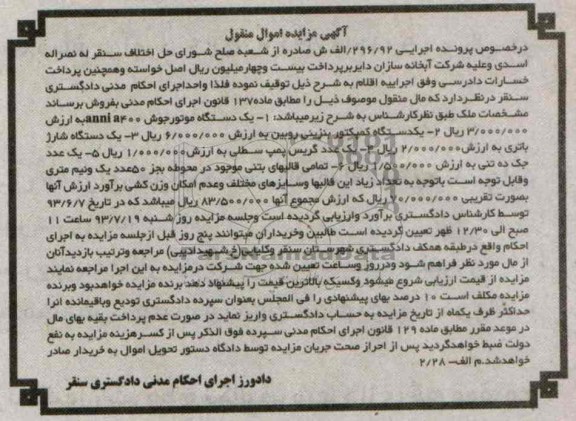 آگهی مزایده اموال منقول
درخصوص پرونده اجرایی ۲۹۶/۹۲/الف ش صادره از شعبه صلح شورای حل اختلاف سنقر له نصراله
اسدی وعلیه شرکت آبخانه سازان دایربرپرداخت بیست وچهارمیلیون ریال اصل خواسته وهمچنین پرداخت
خسارات دادرسی وفق اجراییه اقلام به شرح ذیل توقیف نموده فلذا واحداجرای احکام مدنی دادگستری
سنقر درنظردارد که مال منقول موصوف ذیل را مطابق ماده۱۳۷ قانون اجرای احکام مدنی بفروش برساند
مشخصات ملک طبق نظرکارشناس به شرح زیرمیباشد: ۱- یک دستگاه موتورجوش anni a۴۰۰به ارزش
۳/۰۰۰/۰۰۰ ریال ۲- یکدستگاه کمپکتور بنزینی روبین به ارزش ۶/۰۰۰/۰۰۰ ریال ۳- یک دستگاه شارژ
باتری به ارزش۲/۰۰۰/۰۰۰ ریال ۴- یک عدد گریس پمپ سطلی به ارزش۱/۰۰۰/۰۰۰ ریال ۵- یک عدد
جک ده تنی به ارزش ۱/۵۰۰/۰۰۰ ریال ۶- تمامی قالبهای بتنی موجود در محوطه بجز ۵۰عدد یک ونیم متری
وقابل توجه است باتوجه به تعداد زیاد این قالبها وسایزهای مختلف وعدم امکان وزن کشی برآورد ارزش آنها
بصورت تقریبی ۷۰/۰۰۰/۰۰۰ ریال است که ارزش مجموع آنها ۸۳/۵۰۰/۰۰۰ ریال میباشد که در تاریخ ۹۳/۶/۷
توسط کارشناس دادگستری برآورد وارزیابی گردیده است وجلسه مزایده روز شنبه ۹۳/۷/۱۹ ساعت ۱۱
صبح الی ۱۲/۳۰ ظهر تعیین گردیده است طالبین وخریداران میتوانند پنج روز قبل ازجلسه مزایده به اجرای
احکام واقع درطبقه همکف دادگستری شهرستان سنقر وکلیایی(خ شهیدادیبی) مراجعه وترتیب بازدیدآنان
از مال مورد نظر فراهم شود ودرروز وساعت تعیین شده جهت شرکت درمزایده به این اجرا مراجعه نمایند
مزایده از قیمت ارزیابی شروع میشود وکسیکه بالاترین قیمت را پیشنهاد دهد برنده مزایده خواهدبود وبرنده
مزایده مکلف است ۱۰ درصد بهای پیشنهادی را فی المجلس بعنوان سپرده دادگستری تودیع وباقیمانده انرا
حداکثر ظرف یکماه از تاریخ مزایده به حساب دادگستری واریز نماید در صورت عدم پرداخت بقیه بهای مال
در موعد مقرر مطابق ماده ۱۲۹ قانون اجرای احکام مدنی سپرده فوق الذکر پس از کسرهزینه مزایده به نفع
دولت ضبط خواهدگردید پس از احراز صحت جریان مزایده توسط دادگاه دستور تحویل اموال به خریدار صادر
خواهدشد.م الف- ۲/۲۸
دادورز اجرای احکام مدنی دادگستری سنقر